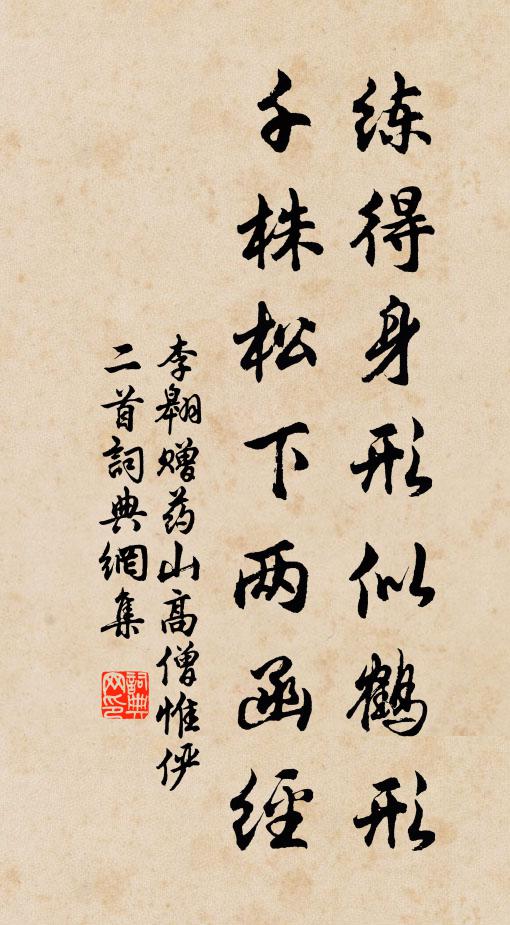 练得身形似鹤形
千株松下两函经
李翱赠药山高僧惟俨
二首詞典網集
詞典
网印